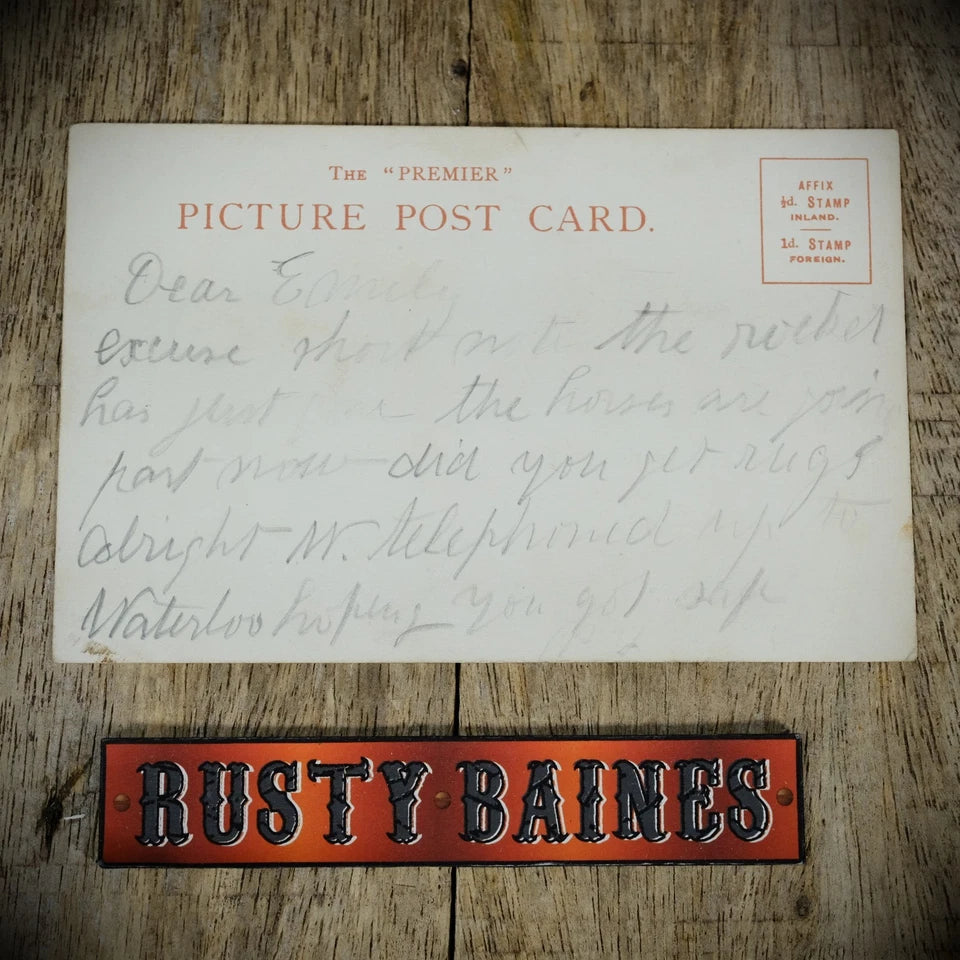 The "PREMIER"
PICTURE POST CARD.
AFFIX
½d. STAMP
INLAND.
1d. STAMP
FOREIGN.
Dear Emily
excuse short note the
has just the horses are going
past now did you get rugs
alright W. telephoned up to
Waterloo hoping you got safe
RUSTY BAINES